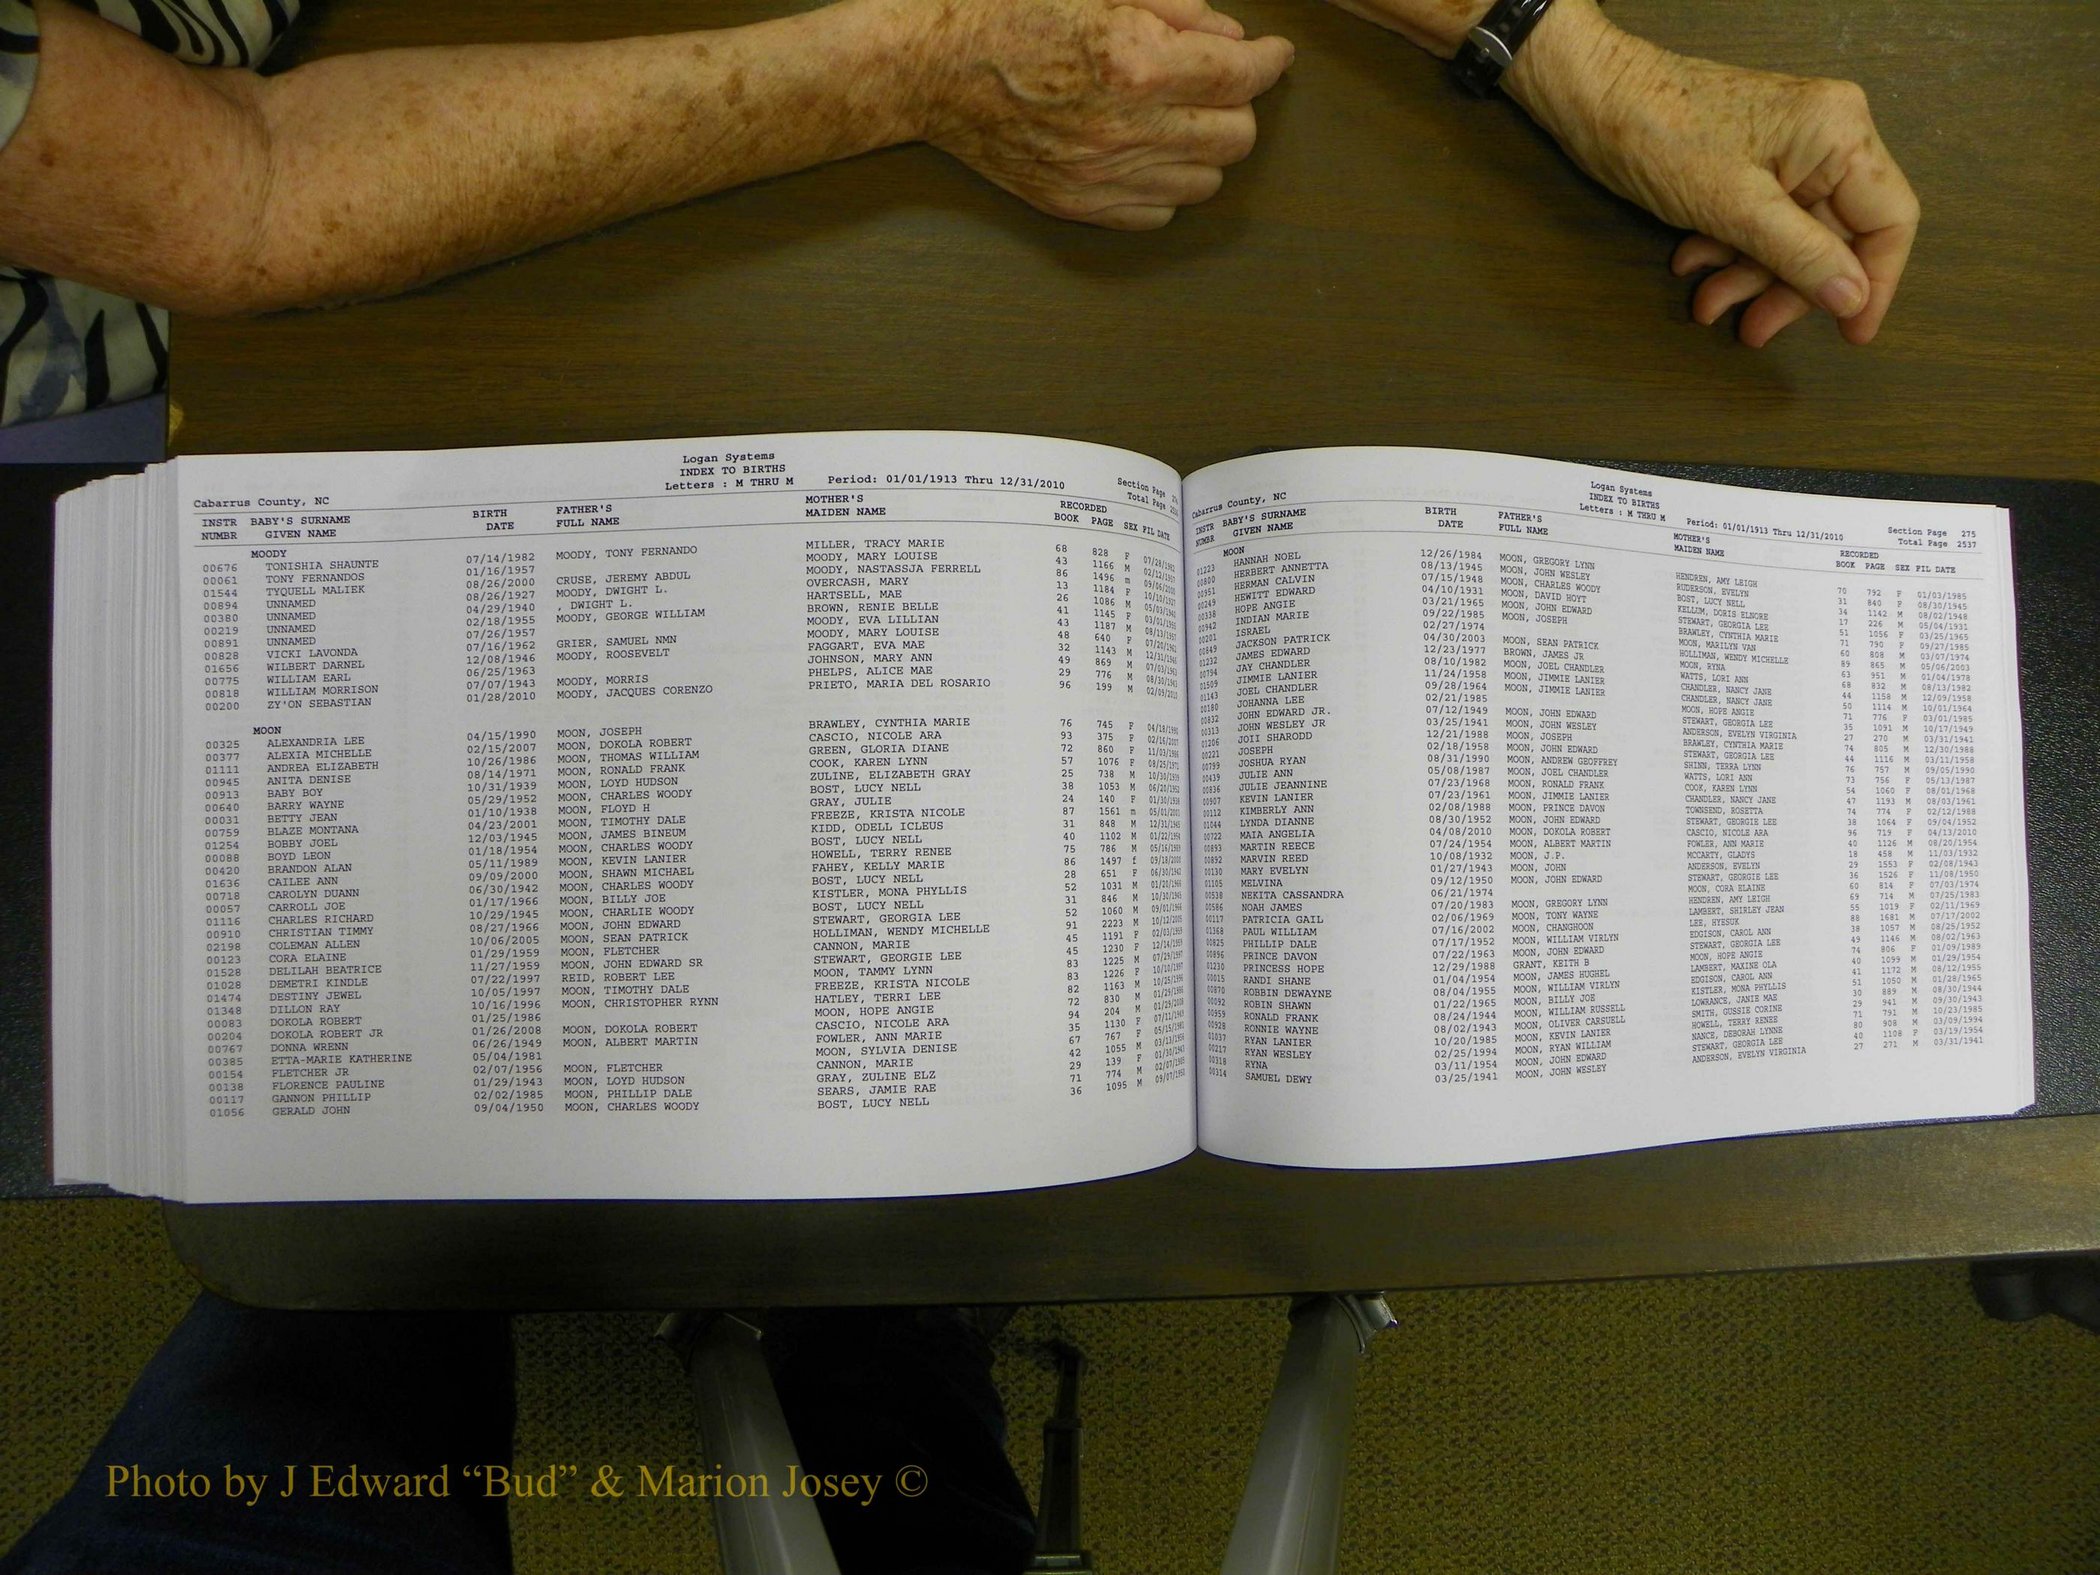 Logan Systems
INDEX TO BIRTHS
Cabarrus County, NC Letters : M THRU M Period: 01/01/1913 Thru 12/31/2010 Section Page
Total Page
INSTR BABY'S SURNAME BIRTH FATHER'S MOTHER'S RECORDED
NUMBR GIVEN NAME DATE FULL NAME MAIDEN NAME BOOK PAGE SEX FIL DATE
MOODY
00676 TONISHIA SHAUNTE 07/14/1982 MOODY, TONY FERNANDO MILLER, TRACY MARIE 68 828 F 07/28/1982
00061 TONY FERNANDOS 01/16/1957 MOODY, MARY LOUISE 43 1166 M 02/12/1957
01544 TYQUELL MALIEK 08/26/2000 CRUSE, JEREMY ABDUL MOODY, NASTASSJA FERRELL 86 1496 m 09/06/2000
00894 UNNAMED 08/26/1927 MOODY, DWIGHT L. OVERCASH, MARY 13 1184 F 10/10/1927
00380 UNNAMED 04/29/1940 , DWIGHT L. HARTSELL, MAE 26 1086 M 05/03/1940
00219 UNNAMED 02/18/1955 MOODY, GEORGE WILLIAM BROWN, RENIE BELLE 41 1145 F 03/01/1955
00891 UNNAMED 07/26/1957 MOODY, EVA LILLIAN 43 1187 M 08/13/1957
00828 VICKI LAVONDA 07/16/1962 GRIER, SAMUEL NMN MOODY, MARY LOUISE 48 640 F 07/20/1962
01656 WILBERT DARNEL 12/08/1946 MOODY, ROOSEVELT FAGGART, EVA MAE 32 1143 M 12/31/1946
00775 WILLIAM EARL 06/25/1963 JOHNSON, MARY ANN 49 869 M 07/03/1963
00818 WILLIAM MORRISON 07/07/1943 MOODY, MORRIS PHELPS, ALICE MAE 29 776 M 08/30/1943
00200 ZY'ON SEBASTIAN 01/28/2010 MOODY, JACQUES CORENZO PRIETO, MARIA DEL ROSARIO 96 199 M 02/09/2010
MOON
00325 ALEXANDRIA LEE 04/15/1990 MOON, JOSEPH BRAWLEY, CYNTHIA MARIE 76 745 F 04/18/1990
00377 ALEXIA MICHELLE 02/15/2007 MOON, DOKOLA ROBERT CASCIO, NICOLE ARA 93 375 F 02/16/2007
01111 ANDREA ELIZABETH 10/26/1986 MOON, THOMAS WILLIAM GREEN, GLORIA DIANE 72 860 F 11/03/1986
00945 ANITA DENISE 08/14/1971 MOON, RONALD FRANK COOK, KAREN LYNN 57 1076 F 08/25/1971
00913 BABY BOY 10/31/1939 MOON, LOYD HUDSON ZULINE, ELIZABETH GRAY 25 738 M 10/30/1939
00640 BARRY WAYNE 05/29/1952 MOON, CHARLES WOODY BOST, LUCY NELL 38 1053 M 06/20/1952
00031 BETTY JEAN 01/10/1938 MOON, FLOYD H GRAY, JULIE 24 140 F 01/30/1938
00759 BLAZE MONTANA 04/23/2001 MOON, TIMOTHY DALE FREEZE, KRISTA NICOLE 87 1561 m 05/01/2001
01254 BOBBY JOEL 12/03/1945 MOON, JAMES BINEUM KIDD, ODELL ICLEUS 31 848 M 12/31/1945
00088 BOYD LEON 01/18/1954 MOON, CHARLES WOODY BOST, LUCY NELL 40 1102 M 01/22/1954
00420 BRANDON ALAN 05/11/1989 MOON, KEVIN LANIER HOWELL, TERRY RENEE 75 786 M 05/16/1989
01636 CAILEE ANN 09/09/2000 MOON, SHAWN MICHAEL FAHEY, KELLY MARIE 86 1497 f 09/18/2000
00718 CAROLYN DUANN 06/30/1942 MOON, CHARLES WOODY BOST, LUCY NELL 28 651 F 06/30/1942
00057 CARROLL JOE 01/17/1966 MOON, BILLY JOE KISTLER, MONA PHYLLIS 52 1031 M 01/20/1966
01116 CHARLES RICHARD 10/29/1945 MOON, CHARLIE WOODY BOST, LUCY NELL 31 846 M 10/30/1945
00910 CHRISTIAN TIMMY 08/27/1966 MOON, JOHN EDWARD STEWART, GEORGIA LEE 52 1060 M 09/01/1966
02198 COLEMAN ALLEN 10/06/2005 MOON, SEAN PATRICK HOLLIMAN, WENDY MICHELLE 91 2223 M 10/12/2005
00123 CORA ELAINE 01/29/1959 MOON, FLETCHER CANNON, MARIE 45 1191 F 02/03/1959
01528 DELILAH BEATRICE 11/27/1959 MOON, JOHN EDWARD SR STEWART, GEORGIE LEE 45 1230 F 12/14/1959
01028 DEMETRI KINDLE 07/22/1997 REID, ROBERT LEE MOON, TAMMY LYNN 83 1225 M 07/29/1997
01474 DESTINY JEWEL 10/05/1997 MOON, TIMOTHY DALE FREEZE, KRISTA NICOLE 83 1226 F 10/10/1997
01348 DILLON RAY 10/16/1996 MOON, CHRISTOPHER RYNN HATLEY, TERRI LEE 82 1163 M 10/25/1996
00083 DOKOLA ROBERT 01/25/1986 MOON, HOPE ANGIE 72 830 M 01/29/1986
00204 DOKOLA ROBERT JR 01/26/2008 MOON, DOKOLA ROBERT CASCIO, NICOLE ARA 94 204 M 01/29/2008
00767 DONNA WRENN 06/26/1949 MOON, ALBERT MARTIN FOWLER, ANN MARIE 35 1130 F 07/11/1949
00385 ETTA-MARIE KATHERINE 05/04/1981 MOON, SYLVIA DENISE 67 767 F 05/15/1981
00154 FLETCHER JR 02/07/1956 MOON, FLETCHER CANNON, MARIE 42 1055 M 03/13/1956
00138 FLORENCE PAULINE 01/29/1943 MOON, LOYD HUDSON GRAY, ZULINE ELZ 29 139 F 01/30/1943
00117 GANNON PHILLIP 02/02/1985 MOON, PHILLIP DALE SEARS, JAMIE RAE 71 774 M 02/07/1985
01056 GERALD JOHN 09/04/1950 MOON, CHARLES WOODY BOST, LUCY NELL 36 1095 M 09/07/1950
Logan Systems
INDEX TO BIRTHS
Cabarrus County, NC Letters : M THRU M Period: 01/01/1913 Thru 12/31/2010 Section Page 275
Total Page 2537
INSTR BABY'S SURNAME BIRTH FATHER'S MOTHER'S RECORDED
NUMBR GIVEN NAME DATE FULL NAME MAIDEN NAME BOOK PAGE SEX FIL DATE
MOON
01223 HANNAH NOEL 12/26/1984 MOON, GREGORY LYNN HENDREN, AMY LEIGH 70 792 F 01/03/1985
00800 HERBERT ANNETTA 08/13/1945 MOON, JOHN WESLEY RUDERSON, EVELYN 31 840 F 08/30/1945
00951 HERMAN CALVIN 07/15/1948 MOON, CHARLES WOODY BOST, LUCY NELL 34 1142 M 08/02/1948
00249 HEWITT EDWARD 04/10/1931 MOON, DAVID HOYT KELLUM, DORIS ELNORE 17 226 M 05/04/1931
00338 HOPE ANGIE 03/21/1965 MOON, JOHN EDWARD STEWART, GEORGIA LEE 51 1056 F 03/25/1965
00942 INDIAN MARIE 09/22/1985 MOON, JOSEPH BRAWLEY, CYNTHIA MARIE 71 790 F 09/27/1985
00201 ISRAEL 02/27/1974 MOON, MARILYN VAN 60 808 M 03/07/1974
00849 JACKSON PATRICK 04/30/2003 MOON, SEAN PATRICK HOLLIMAN, WENDY MICHELLE 89 865 M 05/06/2003
01232 JAMES EDWARD 12/23/1977 BROWN, JAMES JR MOON, RYNA 63 951 M 01/04/1978
00794 JAY CHANDLER 08/10/1982 MOON, JOEL CHANDLER WATTS, LORI ANN 68 832 M 08/13/1982
01509 JIMMIE LANIER 11/24/1958 MOON, JIMMIE LANIER CHANDLER, NANCY JANE 44 1158 M 12/09/1958
01143 JOEL CHANDLER 09/28/1964 MOON, JIMMIE LANIER CHANDLER, NANCY JANE 50 1114 M 10/01/1964
00180 JOHANNA LEE 02/21/1985 MOON, HOPE ANGIE 71 776 F 03/01/1985
00832 JOHN EDWARD JR. 07/12/1949 MOON, JOHN EDWARD STEWART, GEORGIA LEE 35 1091 M 10/17/1949
00313 JOHN WESLEY JR 03/25/1941 MOON, JOHN WESLEY ANDERSON, EVELYN VIRGINIA 27 270 M 03/31/1941
01206 JOII SHARODD 12/21/1988 MOON, JOSEPH BRAWLEY, CYNTHIA MARIE 74 805 M 12/30/1988
00221 JOSEPH 02/18/1958 MOON, JOHN EDWARD STEWART, GEORGIA LEE 44 1116 M 03/11/1958
00799 JOSHUA RYAN 08/31/1990 MOON, ANDREW GEOFFREY SHINN, TERRA LYNN 76 757 M 09/05/1990
00439 JULIE ANN 05/08/1987 MOON, JOEL CHANDLER WATTS, LORI ANN 73 756 F 05/13/1987
00836 JULIE JEANNINE 07/23/1968 MOON, RONALD FRANK COOK, KAREN LYNN 54 1060 F 08/01/1968
00907 KEVIN LANIER 07/23/1961 MOON, JIMMIE LANIER CHANDLER, NANCY JANE 47 1193 M 08/03/1961
00112 KIMBERLY ANN 02/08/1988 MOON, PRINCE DAVON TOWNSEND, ROSETTA 74 774 F 02/12/1988
01044 LYNDA DIANNE 08/30/1952 MOON, JOHN EDWARD STEWART, GEORGIE LEE 38 1064 F 09/04/1952
00722 MAIA ANGELIA 04/08/2010 MOON, DOKOLA ROBERT CASCIO, NICOLE ARA 96 719 F 04/13/2010
00893 MARTIN REECE 07/24/1954 MOON, ALBERT MARTIN FOWLER, ANN MARIE 40 1126 M 08/20/1954
00892 MARVIN REED 10/08/1932 MOON, J.P. MCCARTY, GLADYS 18 458 M 11/03/1932
00130 MARY EVELYN 01/27/1943 MOON, JOHN ANDERSON, EVELYN 29 1553 F 02/08/1943
01105 MELVINA 09/12/1950 MOON, JOHN EDWARD STEWART, GEORGIE LEE 36 1526 F 11/08/1950
00538 NEKITA CASSANDRA 06/21/1974 MOON, CORA ELAINE 60 814 F 07/03/1974
00586 NOAH JAMES 07/20/1983 MOON, GREGORY LYNN HENDREN, AMY LEIGH 69 714 M 07/25/1983
00117 PATRICIA GAIL 02/06/1969 MOON, TONY WAYNE LAMBERT, SHIRLEY JEAN 55 1019 F 02/11/1969
01368 PAUL WILLIAM 07/16/2002 MOON, CHANGHOON LEE, HYESUK 88 1681 M 07/17/2002
00825 PHILLIP DALE 07/17/1952 MOON, WILLIAM VIRLYN EDGISON, CAROL ANN 38 1057 M 08/25/1952
00896 PRINCE DAVON 07/22/1963 MOON, JOHN EDWARD STEWART, GEORGIA LEE 49 1146 M 08/02/1963
01230 PRINCESS HOPE 12/29/1988 GRANT, KEITH B MOON, HOPE ANGIE 74 806 F 01/09/1989
00015 RANDI SHANE 01/04/1954 MOON, JAMES HUGHEL LAMBERT, MAXINE OLA 40 1099 M 01/29/1954
00870 ROBBIN DEWAYNE 08/04/1955 MOON, WILLIAM VIRLYN EDGISON, CAROL ANN 41 1172 M 08/12/1955
00092 ROBIN SHAWN 01/22/1965 MOON, BILLY JOE KISTLER, MONA PHYLLIS 51 1050 M 01/28/1965
00959 RONALD FRANK 08/24/1944 MOON, WILLIAM RUSSELL LOWRANCE, JANIE MAE 30 889 M 08/30/1944
00928 RONNIE WAYNE 08/02/1943 MOON, OLIVER CARSUELL SMITH, GUSSIE CORINE 29 941 M 09/30/1943
01037 RYAN LANIER 10/20/1985 MOON, KEVIN LANIER HOWELL, TERRY RENEE 71 791 M 10/23/1985
00217 RYAN WESLEY 02/25/1994 MOON, RYAN WILLIAM NANCE, DEBORAH LYNNE 80 908 M 03/09/1994
00318 RYNA 03/11/1954 MOON, JOHN EDWARD STEWART, GEORGIA LEE 40 1108 F 03/19/1954
00314 SAMUEL DEWY 03/25/1941 MOON, JOHN WESLEY ANDERSON, EVELYN VIRGINIA 27 271 M 03/31/1941
Photo by J Edward “Bud” & Marion Josey ©